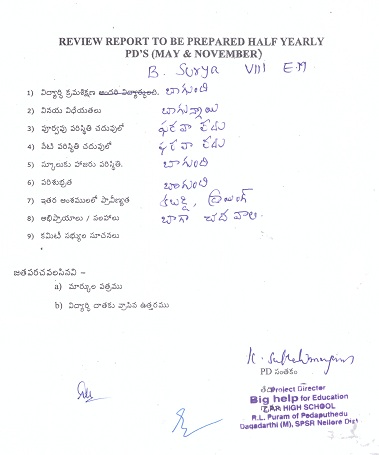 REVIEW REPORT TO BE PREPARED HALF YEARLY
PD'S (MAY & NOVEMBER)
B. Surya VIII EM
1) విద్యార్థి క్రమశిక్షణ బాగుంది
2) వినయ విధేయతలు బాగున్నాయి
3) పూర్వపు పరిస్థితి చదువులో ఫరవా లేదు
4) నేటి పరిస్థితి చదువులో ఫరవా లేదు
5) స్కూలుకు హాజరు పరిస్థితి. బాగుంది
6) పరిశుభ్రత బాగుంది
7) ఇతర అంశములలో ప్రావీణ్యత కబడ్డి, డ్రాయింగ్
8) అభిప్రాయాలు / సలహాలు బాగా చదవాలి.
9) కమిటీ సభ్యుల సూచనలు
జతపరచవలసినవి –
a) మార్కుల పత్రము
b) విద్యార్థి దాతకు వ్రాసిన ఉత్తరము
PD సంతకం
Project Director
Big help for Education
HIGH SCHOOL
R.L. Puram of Pedaputhedu
Dagadarthi (M), SPSR Nellore Dist